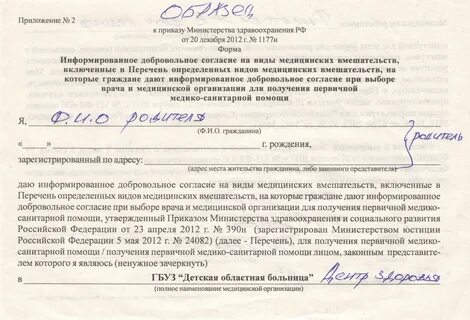 ОБРАЗЕЦ
Приложение № 2
к приказу Министерства здравоохранения РФ
от 20 декабря 2012 г. № 1177н
Форма
Информированное добровольное согласие на виды медицинских вмешательств,
включенные в Перечень определенных видов медицинских вмешательств, на
которые граждане дают информированное добровольное согласие при выборе
врача и медицинской организации для получения первичной
медико-санитарной помощи
Я, Ф.И.О родителя
(Ф.И.О. гражданина)
«____» ____ г. рождения,
родитель
зарегистрированный по адресу:
(адрес места жительства гражданина, либо законного представителя)
даю информированное добровольное согласие на виды медицинских вмешательств, включенные в
Перечень определенных видов медицинских вмешательств, на которые граждане дают информированное
добровольное согласие при выборе врача и медицинской организации для получения первичной медико-
санитарной помощи, утвержденный Приказом Министерства здравоохранения и социального развития
Российской Федерации от 23 апреля 2012 г. № 390н (зарегистрирован Министерством юстиции
Российской Федерации 5 мая 2012 г. № 24082) (далее - Перечень), для получения первичной медико-
санитарной помощи / получения первичной медико-санитарной помощи лицом, законным представи-
телем которого я являюсь (ненужное зачеркнуть) в
ГБУЗ "Детская областная больница" Центр здоровья
(полное наименование медицинской организации)